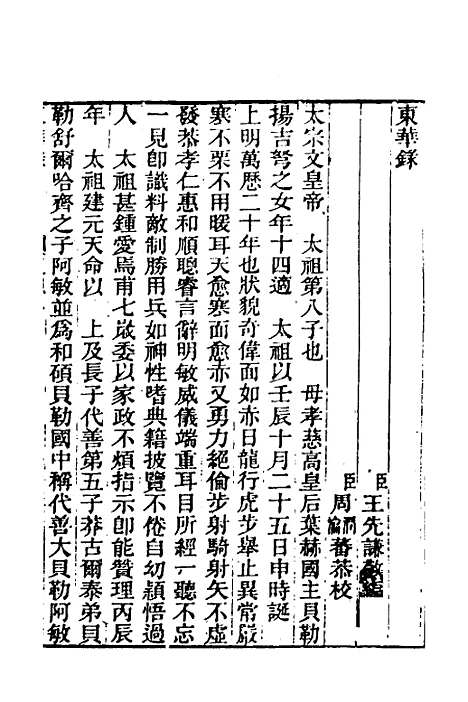 東華錄
臣王先謙敬編
臣周潤蕃周瀹蕃恭校
太宗文皇帝　太祖第八子也　母孝慈高皇后葉赫國主貝勒
揚吉弩之女年十四適　太祖以壬辰十月二十五日申時誕
上明萬歷二十年也狀貌奇偉面如赤日龍行虎步舉止異常嚴
寒不栗不用暖耳天愈寒面愈赤又勇力絕倫步射騎射矢不虛
發恭孝仁惠和順聰睿言辭明敏威儀端重耳目所經一聽不忘
一見卽識料敵制勝用兵如神性嗜典籍披覽不倦自幼穎悟過
人　太祖甚鍾愛焉甫七歲委以家政不煩指示卽能贊理丙辰
年　太祖建元天命以　上及長子代善第五子莽古爾泰弟貝
勒舒爾哈齊之子阿敏並爲和碩貝勒國中稱代善大貝勒阿敏